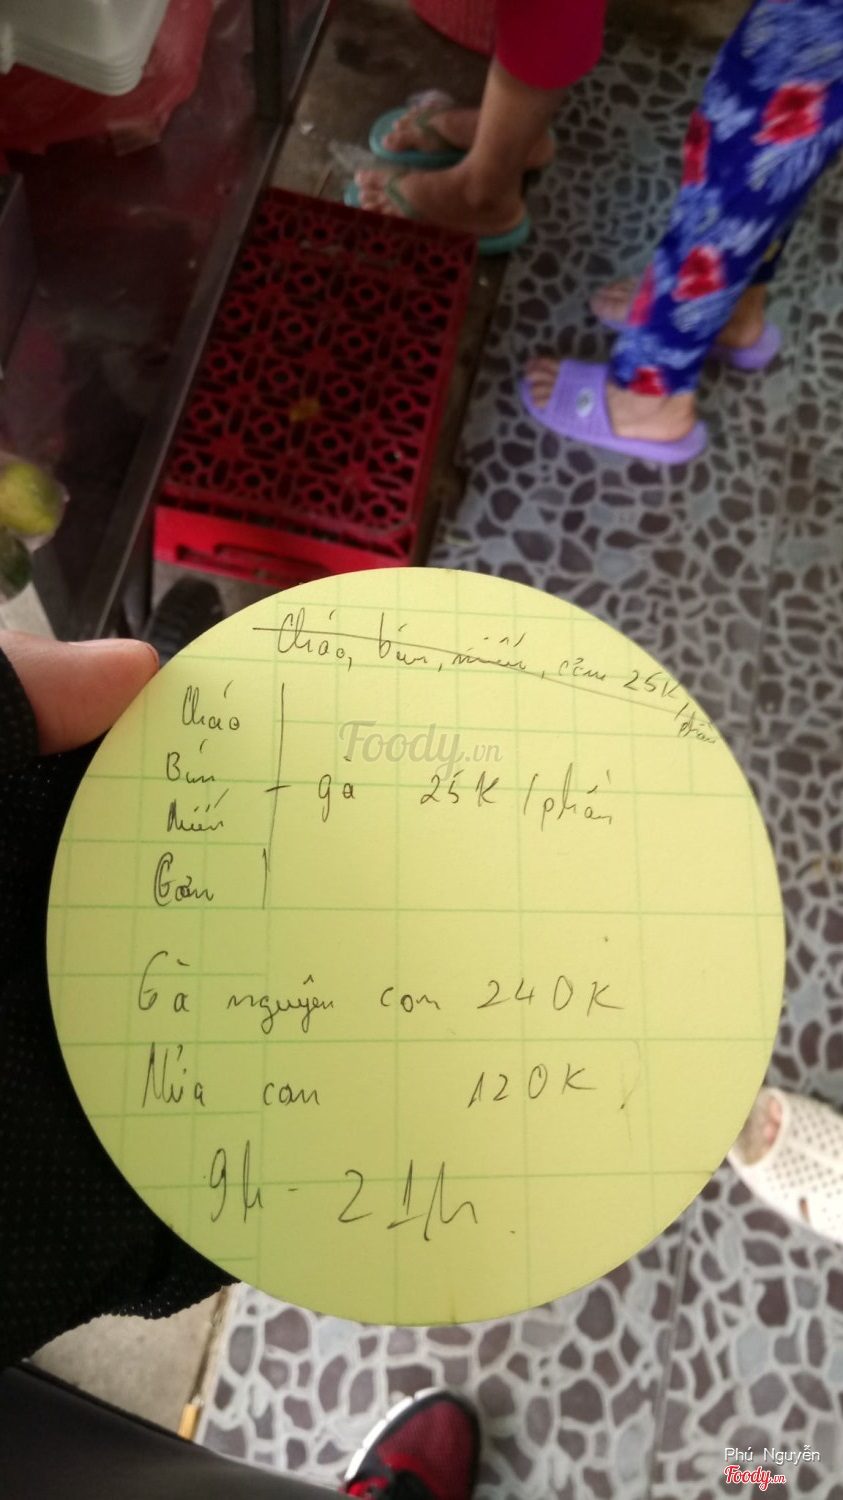 Cháo, bún, miến, cơm 25K/phần
Cháo
Bún
Miến
Cơm
gà 25K/phần
Gà nguyên con 240K
Nửa con 120K
9h - 21h
Foody.vn
Phú Nguyễn
Foody.vn